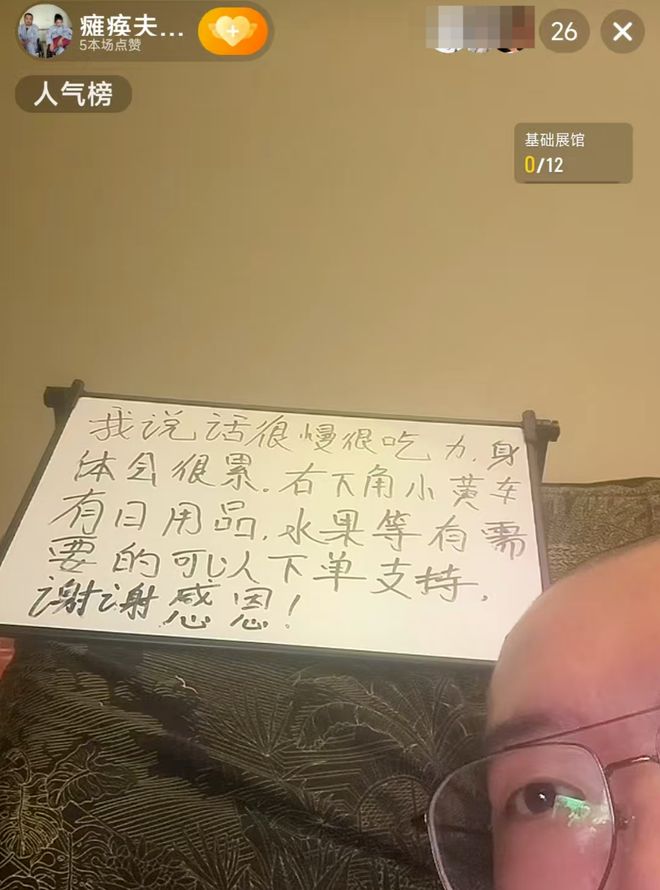 瘫痪夫...
5本场点赞
26
人气榜
基础展馆
0/12
我说话很慢很吃力.身
体会很累.右下角小黄车
有日用品.水果等有需
要的可以下单支持.
谢谢感恩!